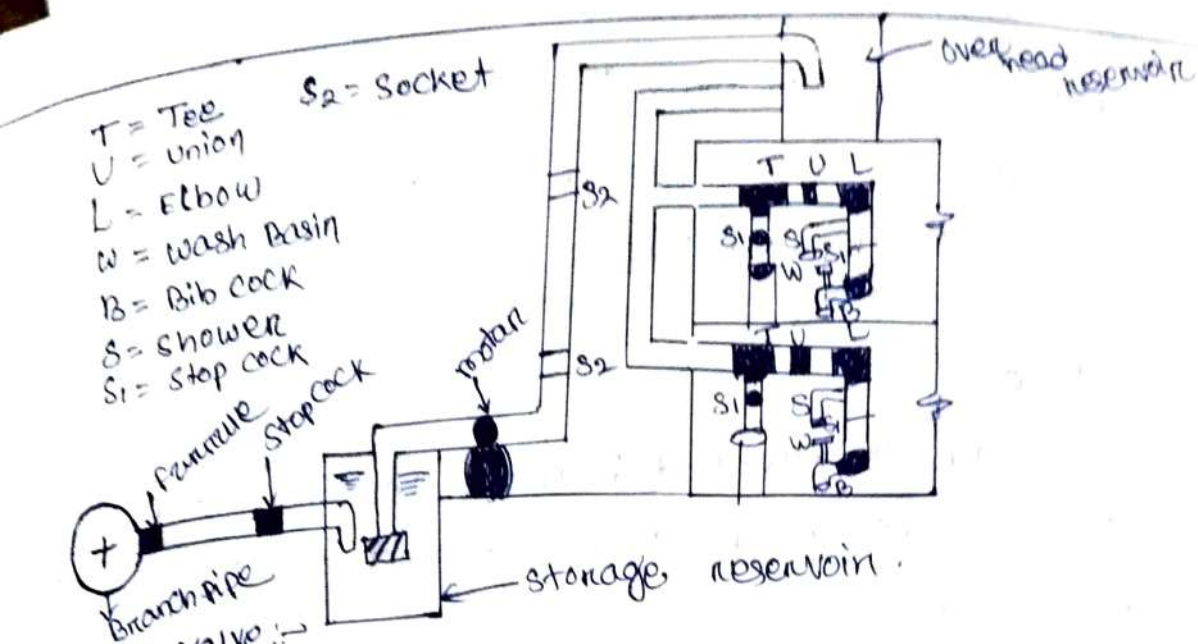 T = Tee
U = Union
L = Elbow
W = Wash Basin
B = Bib cock
S = Shower
S1 = Stop cock
S2 = Socket
over head
reservoir
T U L
S2
S1
S
S1
W
B
motor
S2
T U L
S1
S
S1
W
B
Ferrule
Stop cock
Branch pipe
storage reservoir.
valve :-